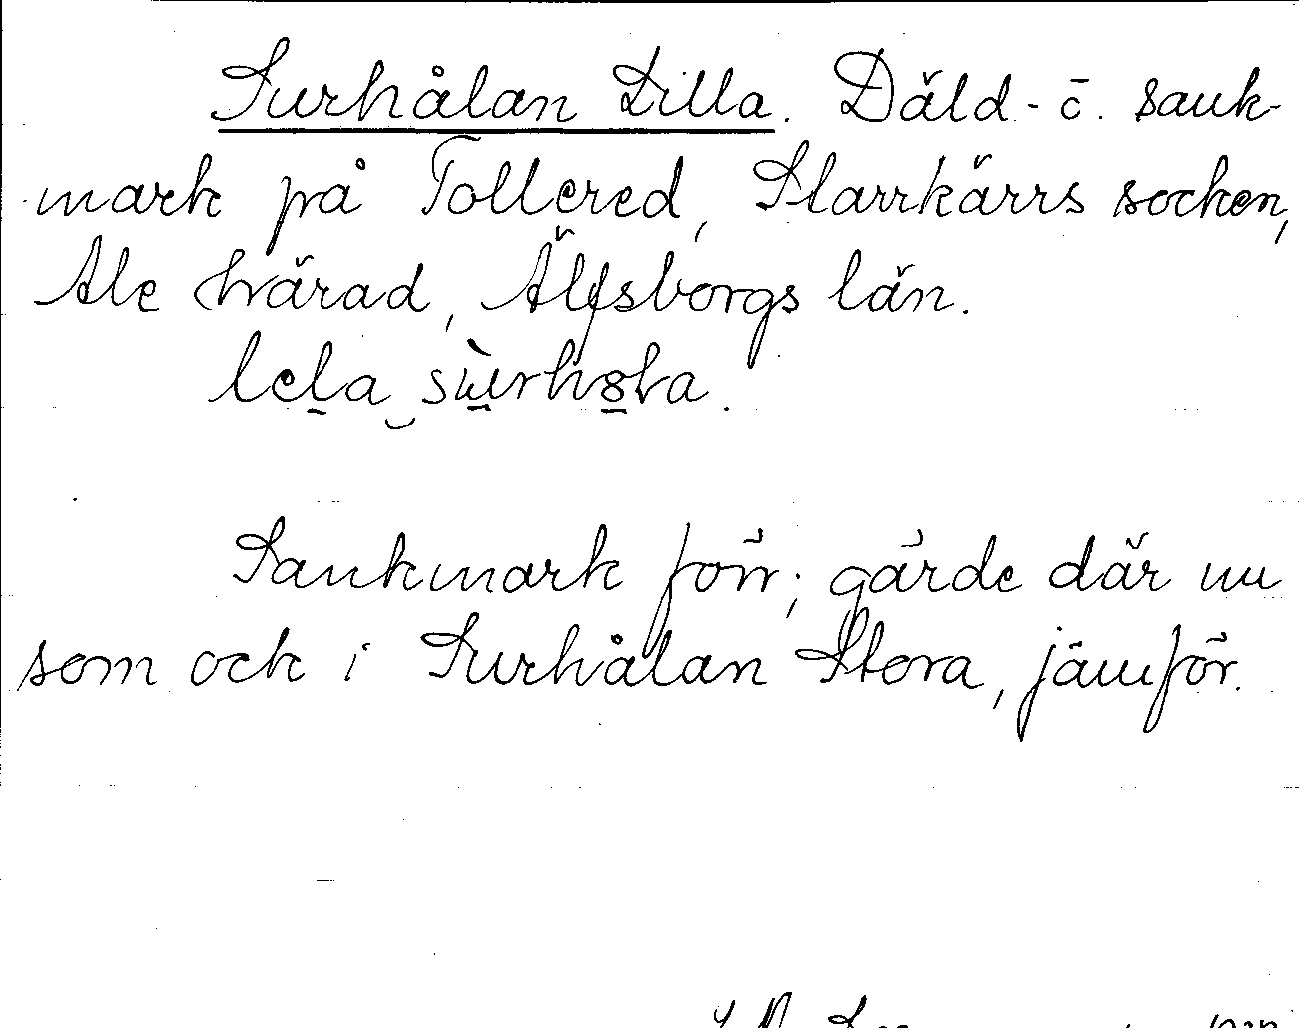 Surhålan Lilla. Däld- o. sank-
mark på Tollered, Starrkärrs socken,
Ale härad, Älfsborgs län.
lela surhola.
Sankmark förr; gärde där nu
som ock i Surhålan Stora, jämför.